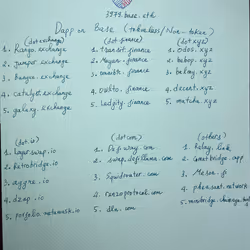 3999.base.eth
Dapp on Base (tokenless/Non-token)
(dot exchange)
1. Kargo.exchange
2. jumper.exchange
3. bungee.exchange
4. catalyst.exchange
5. galaxy.exchange
(dot finance)
1. transit.finance
2. Mayan.finance
3. finance
4. finance
5. ledgity.finance
(dot xyz)
1. odos.xyz
2. bebop.xyz
3. xyz
4. decent.xyz
5. matcha.xyz
(dot io)
1. layerswap.io
2. Retrobridge.io
3. io
4. dzap.io
5. portfolio.metamask.io
(dot com)
1. Defiway.com
2. swap.defillama.com
3. Squidrouter.com
4. ranzoprotocol.com
5. dln.com
(others)
1. Relay.link
2. Comet bridge.app
3. Meson.fi
4. network
5. bridge